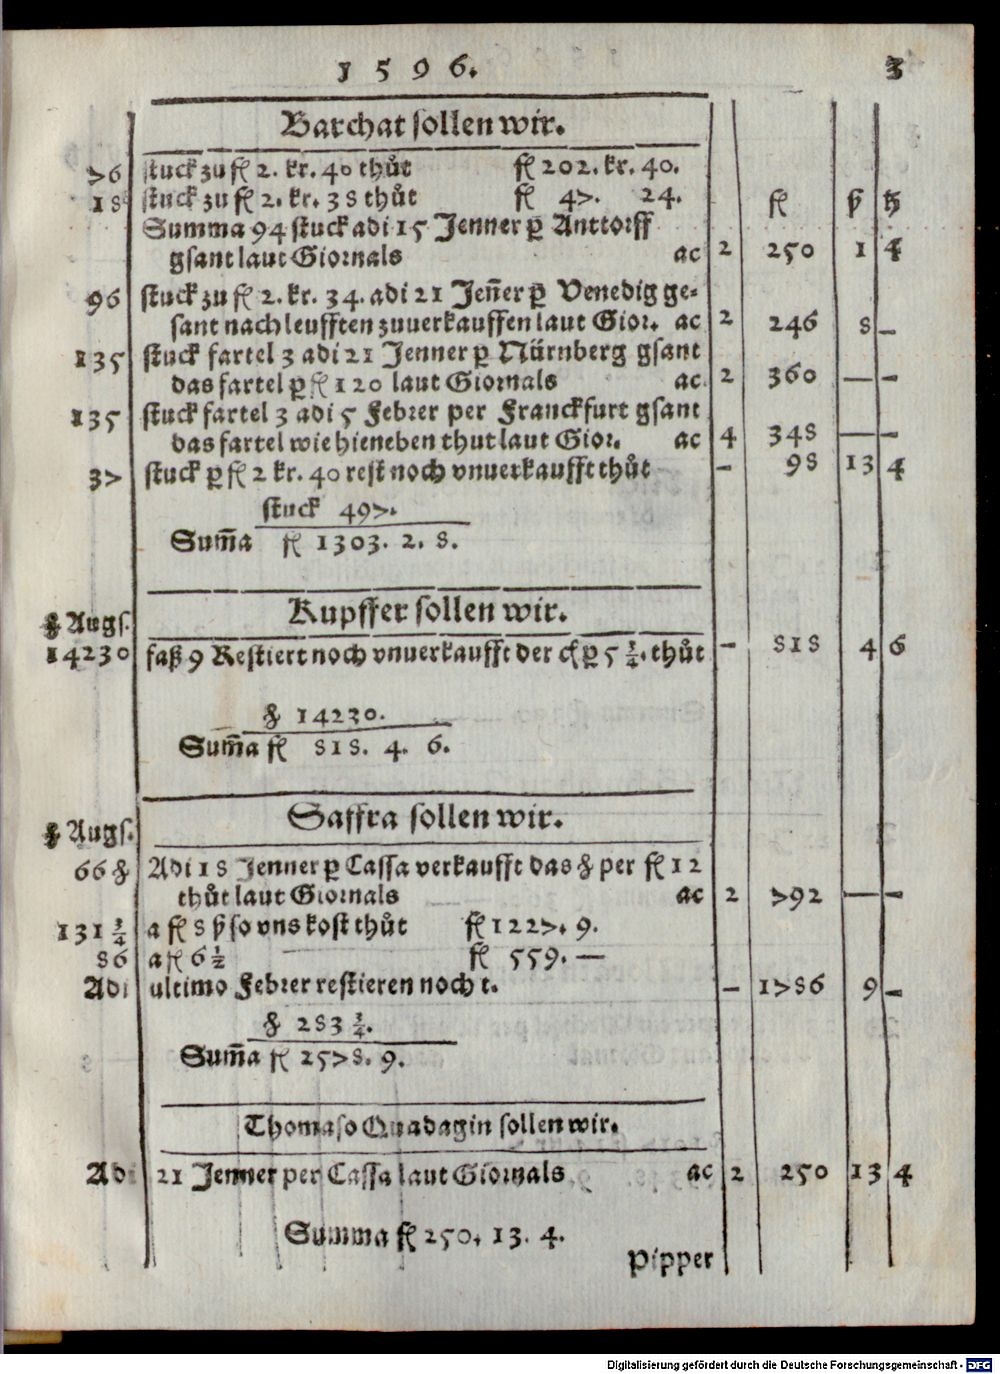 1596. 3
Barchat sollen wir.
76 stuck zu fl 2. kr. 40 thůt fl 202. kr. 40.
18 stuck zu fl 2. kr. 38 thůt fl 47. 24. fl ß hl
Summa 94 stuck adi 15 Jenner p̄ Anttorff
gsant laut Giornals ac 2 250 1 4
96 stuck zu fl 2. kr. 34. adi 21 Jen̄er p̄ Venedig ge-
sant nach leufften zuuerkauffen laut Gior. ac 2 246 8 –
135 stuck fartel 3 adi 21 Jenner p̱ Nürnberg gsant
das fartel p̱ fl 120 laut Giornals ac 2 360 — –
135 stuck fartel 3 adi 5 Febrer per Franckfurt gsant
das fartel wie hieneben thut laut Gior. ac 4 348 — –
37 stuck p̱ fl 2 kr. 40 rest noch vnuerkaufft thůt – 98 13 4
stuck 497.
Sum̄a fl 1303. 2. 8.
Kupffer sollen wir.
℔ Augs.
14230 faß 9 Restiert noch vnuerkaufft der cͥ p̱ 5 3/4. thůt – 818 4 6
℔ 14230.
Sum̄a fl 818. 4. 6.
Saffra sollen wir.
℔ Augs.
66 ℔ Adi 18 Jenner p̱ Cassa verkaufft das ℔ per fl 12
thůt laut Giornals ac 2 792 — –
131 3/4 a fl 8 ß so vns kost thůt fl 1227. 9.
86 a fl 6 1/2 fl 559. —
Adi ultimo Febrer restieren noch t. – 1786 9 –
℔ 283 3/4.
Sum̄a fl 2578. 9.
Thomaso Quadagin sollen wir.
Adi 21 Jenner per Cassa laut Giornals ac 2 250 13 4
Summa fl 250. 13. 4.
Pipper
Digitalisierung gefördert durch die Deutsche Forschungsgemeinschaft - DFG